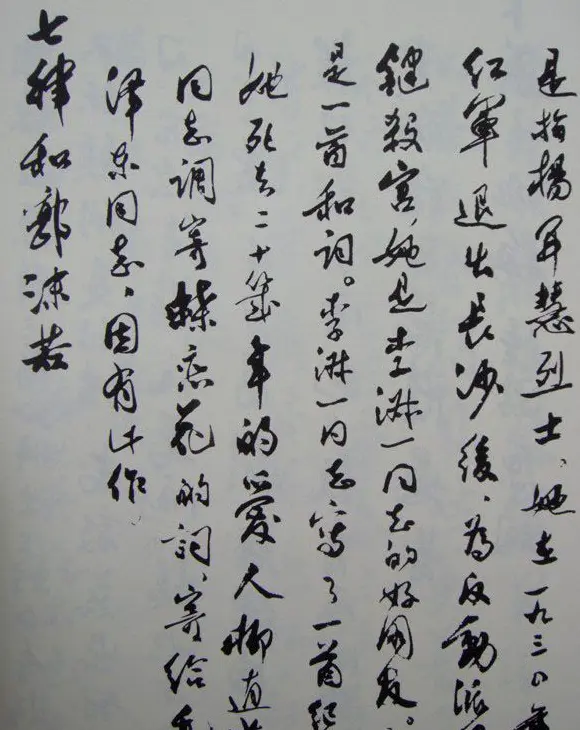 是指楊開慧烈士、她在一九三〇年
紅軍退出長沙後、為反動派
鍵殺害。她是李淑一同志的好朋友。
是一首和詞。李淑一同志寫了一首紀
她死去二十幾年的愛人柳直
同志調寄蝶恋花的詞、寄給毛
澤东同志、因有此作、
七律和郭沫若